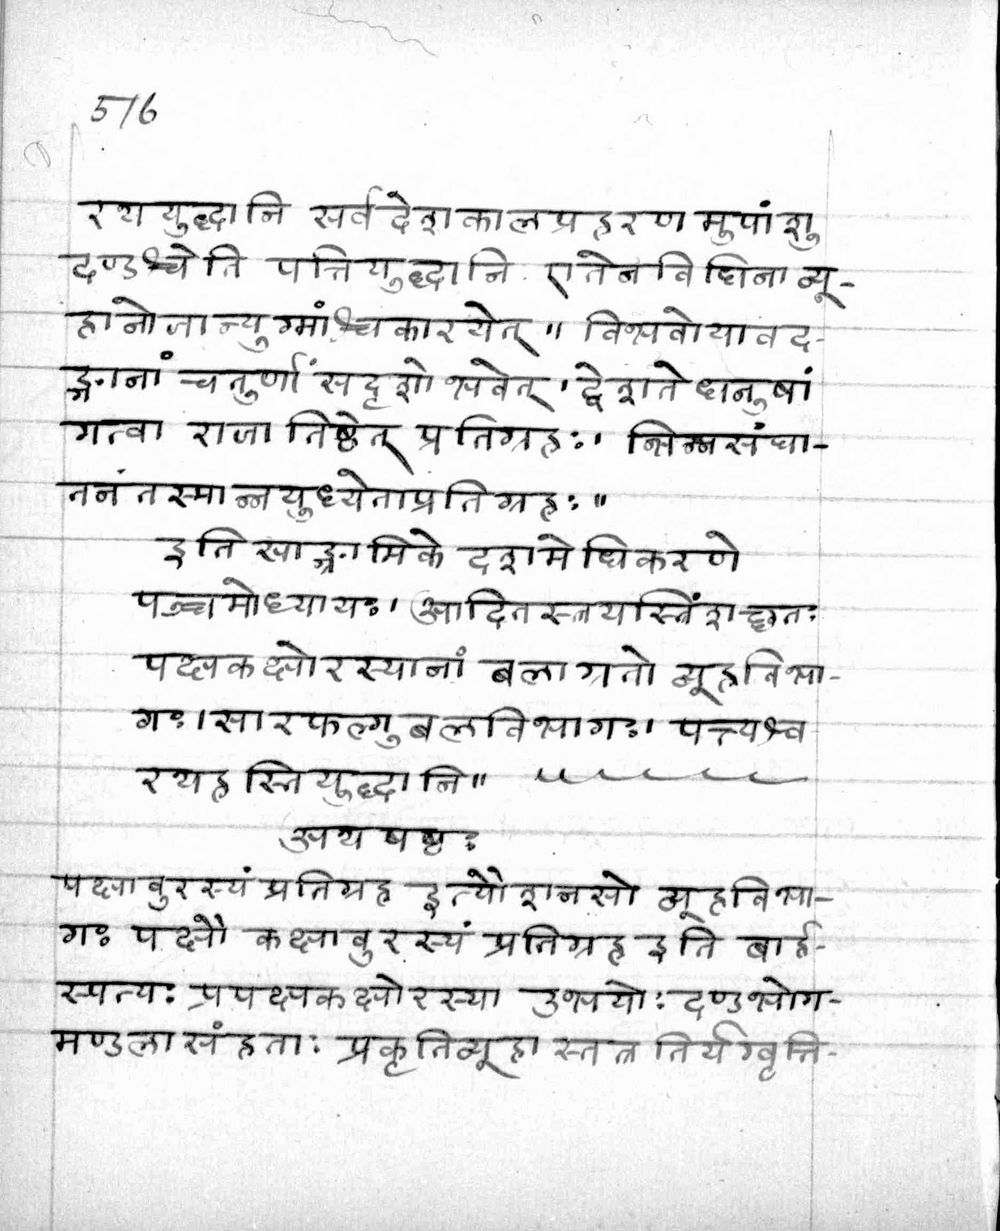 576
रथयुद्धानि सर्वदेशकालप्रहरणमुपांशु
दण्डश्चेति पत्तियुद्धानि एतेन विधिना व्यू-
हानोजान्युग्मांश्च कारयेत्॥ विभवो यावद-
ङ्गानां चतुर्णां सदृशो भवेत्। द्वे शते धनुषां
गत्वा राजा तिष्ठेत् प्रतिग्रहः। भिन्नसंघा-
तनं तस्मान्न युध्येताप्रतिग्रहः॥
इति साङ्ग्रामिके दशमेधिकरणे
पञ्चमोध्यायः। आदितस्त्रयस्त्रिंशच्छतः
पक्षकक्षोरस्यानां बलाग्रतो व्यूहविभा-
गः। सारफल्गुबलविभागः। पत्त्यश्व
रथहस्तियुद्धानि॥
अथ षष्ठः
पक्षावुरस्यं प्रतिग्रह इत्यौशनसो व्यूहविभा-
गः पक्षौ कक्षावुरस्यं प्रतिग्रह इति बार्ह-
स्पत्यः प्रपक्षकक्षोरस्या उभयोः दण्डभोग-
मण्डलासंहताः प्रकृतिव्यूहास्तत्र तिर्यग्वृत्ति-